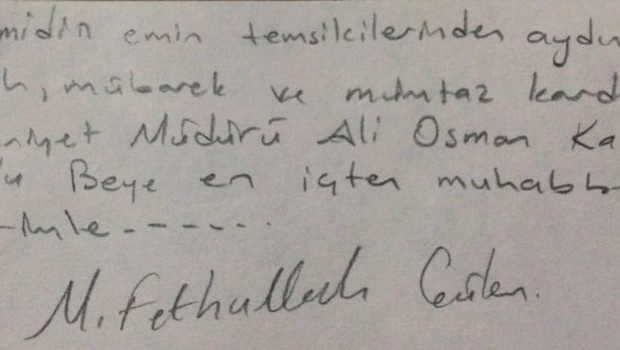 midin emin temsilcilerinden aydın
h, mübarek ve mümtaz kard
niyet Müdürü Ali Osman Ka
Beye en içten muhabb
M. Fethullah Gülen.